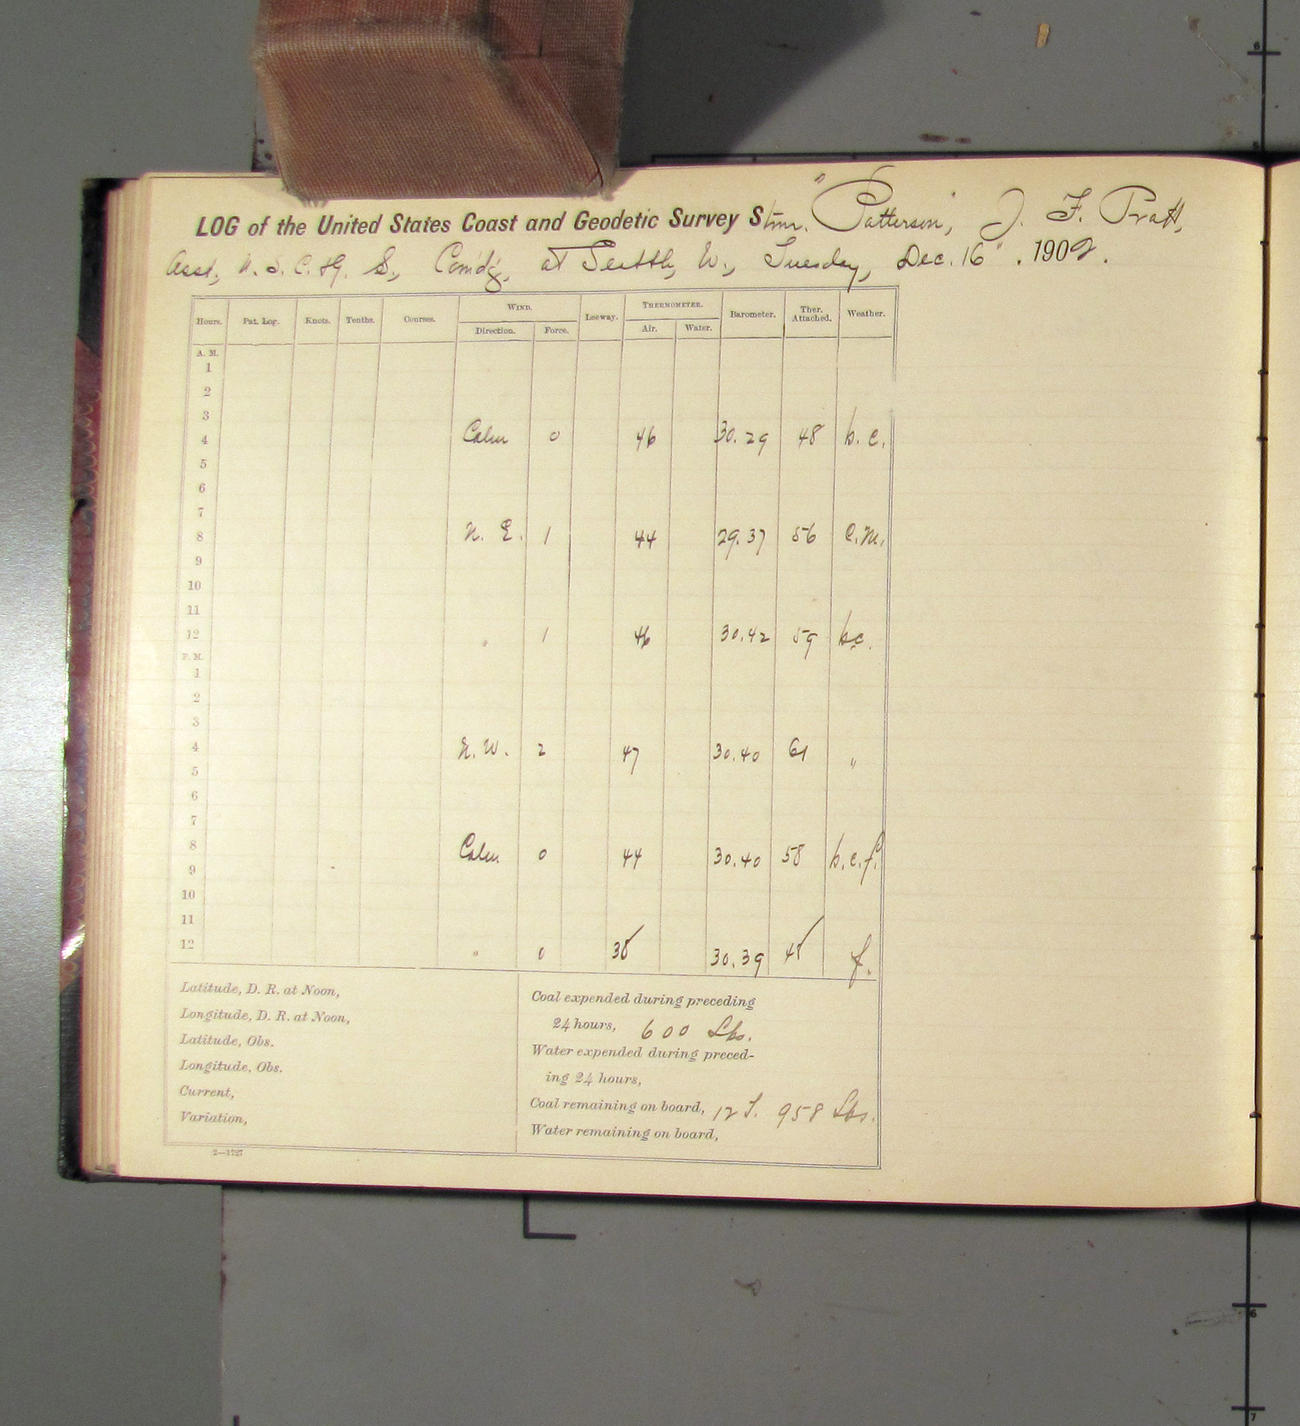 LOG of the United States Coast and Geodetic Survey Stmr. "Patterson", J. F. Pratt,
Asst, U. S. C. & G. S., Comd'g, at Seattle, W., Tuesday, Dec. 16", 1902.
Hours. Pat. Log. Knots. Tenths. Courses. WIND. Leeway. THERMOMETER. Barometer. Ther. Attached. Weather.
Direction. Force. Air. Water.
A. M.
1
2
3
4 Calm 0 46 30.29 48 b. c.
5
6
7
8 N. E. 1 44 29.37 56 c. m.
9
10
11
12 " 1 46 30.42 59 bc.
P. M.
1
2
3
4 N. W. 2 47 30.40 61 "
5
6
7
8 Calm 0 44 30.40 58 b. c. f.
9
10
11
12 " 0 38 30.39 48 f.
Latitude, D. R. at Noon,
Longitude, D. R. at Noon,
Latitude, Obs.
Longitude, Obs.
Current,
Variation,
Coal expended during preceding
24 hours, 600 Lbs.
Water expended during preced-
ing 24 hours,
Coal remaining on board, 12 T. 958 Lbs.
Water remaining on board,
2—1727
6
6
7